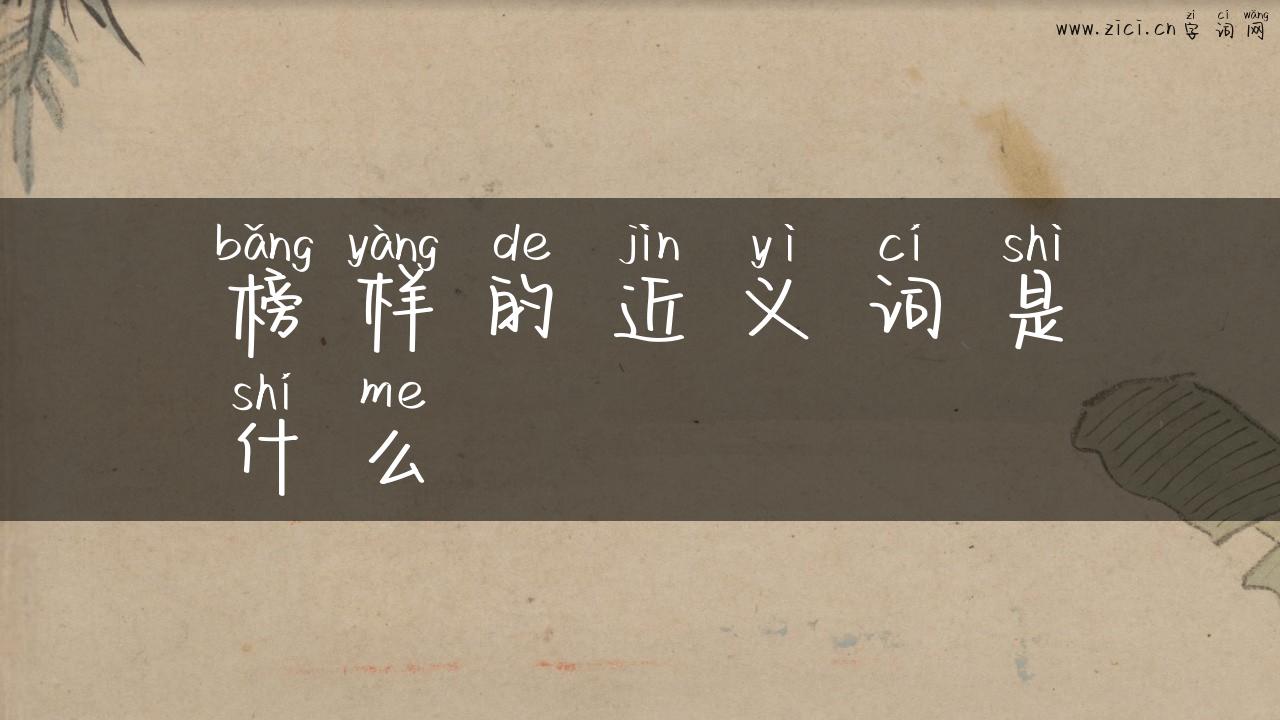 zì cí wǎng
www.zici.cn 字词网
bǎng yàng de jìn yì cí shì
榜样的近义词是
shí me
什么